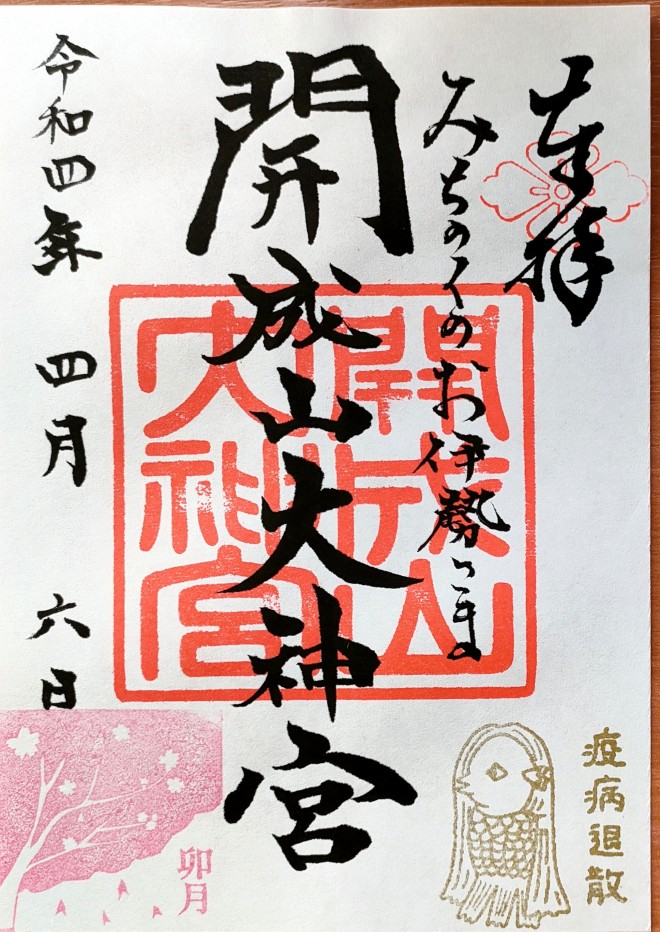 奉拝
みちのくのお伊勢さま
開成山大神宮
開成山
大神宮
令和四年 四月 六日
卯月
疫病退散